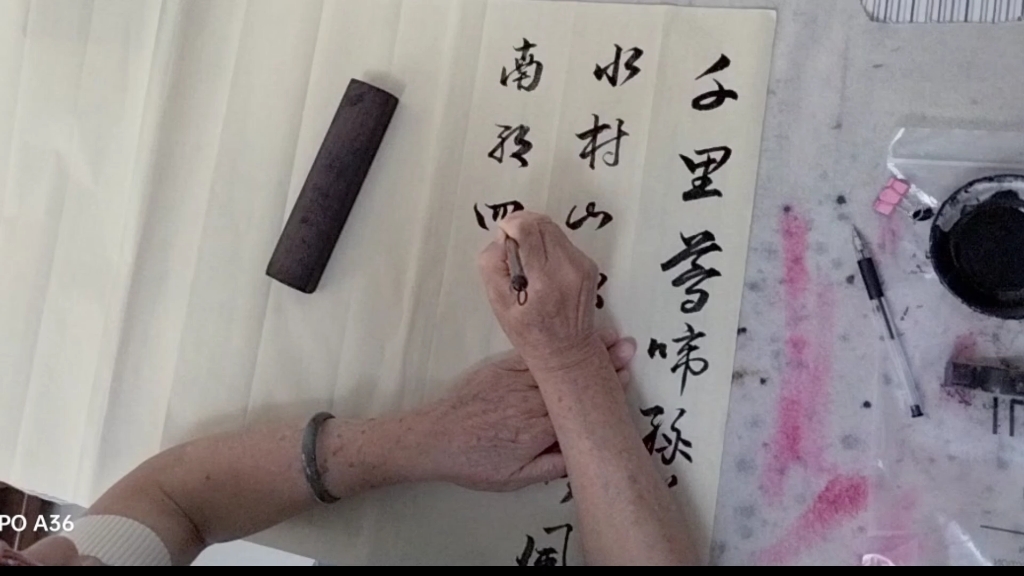 千里莺啼绿
水村山
南朝四
PO A36